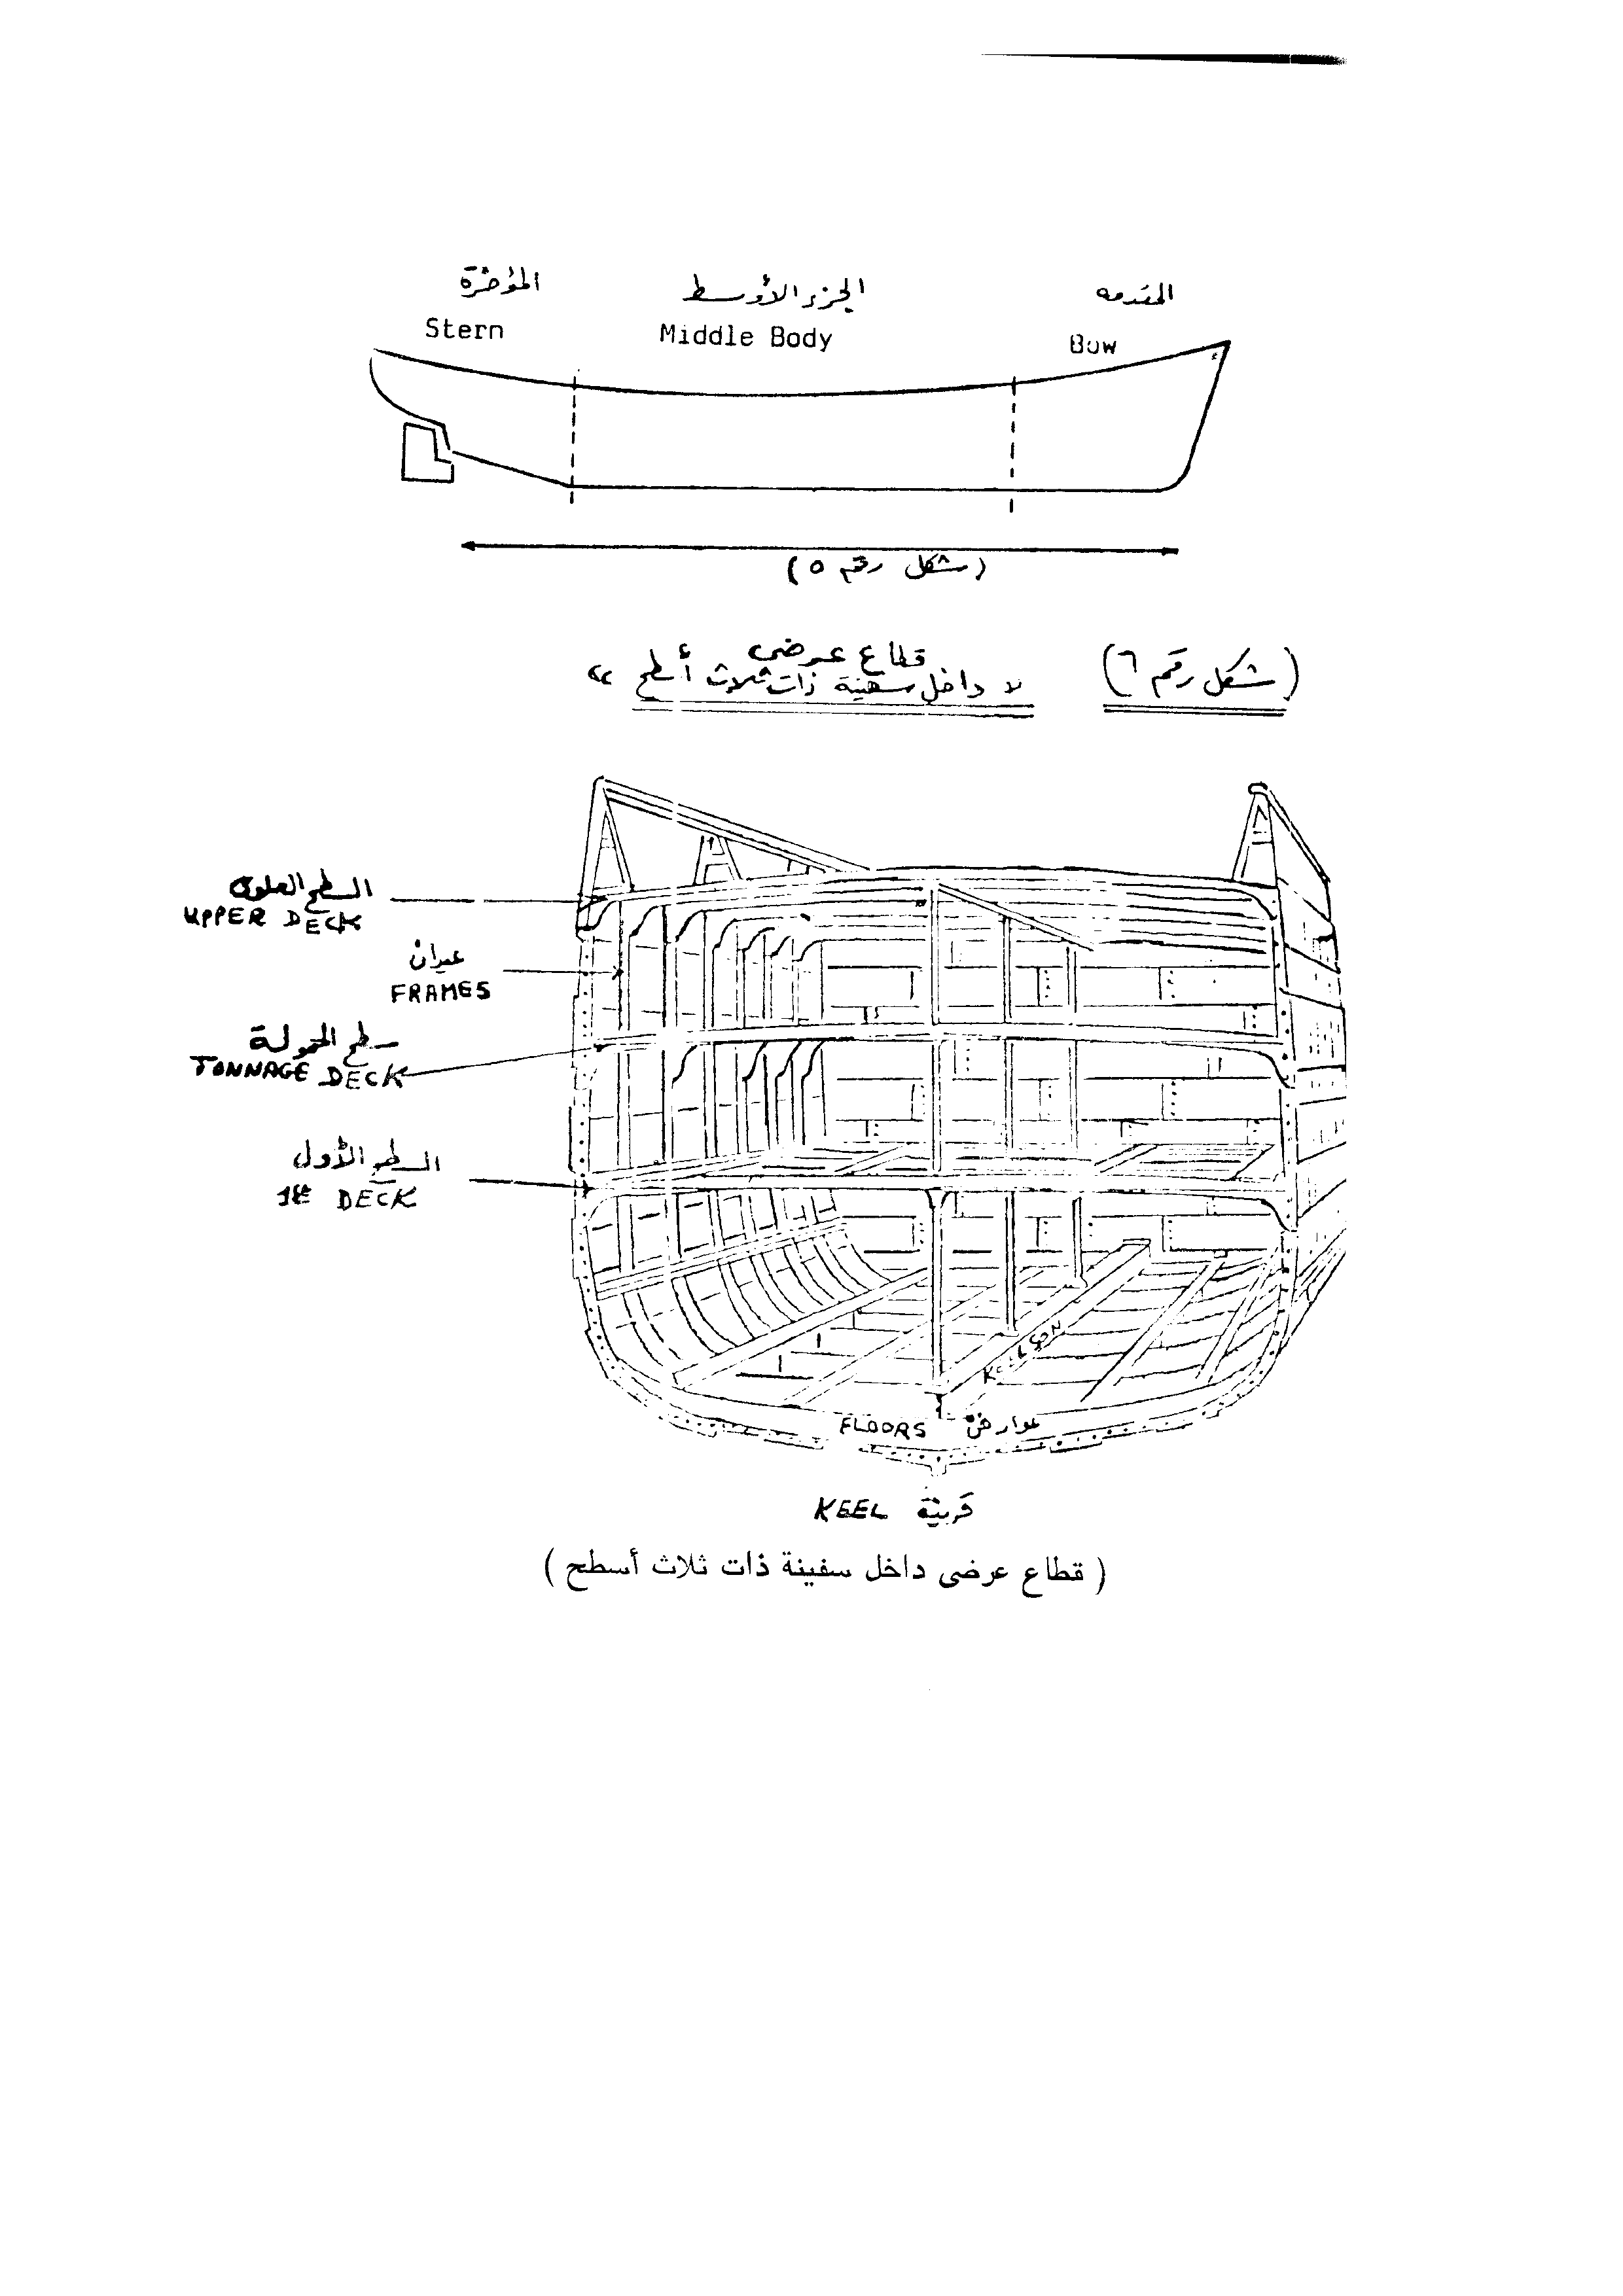 المؤخرة
الجزء الأوسط
المقدمه
Stern
Middle Body
Bow
(شكل رقم ٥)
(شكل رقم ٦)
قطاع عرضى
« داخل سفينة ذات ثلاث أسطح »
السطح العلوى
UPPER DECK
عيدان
FRAMES
سطح الحمولة
TONNAGE DECK
السطح الأول
1st DECK
KEELSON
FLOORS عوارض
KEEL قرينة
( قطاع عرضى داخل سفينة ذات ثلاث أسطح )